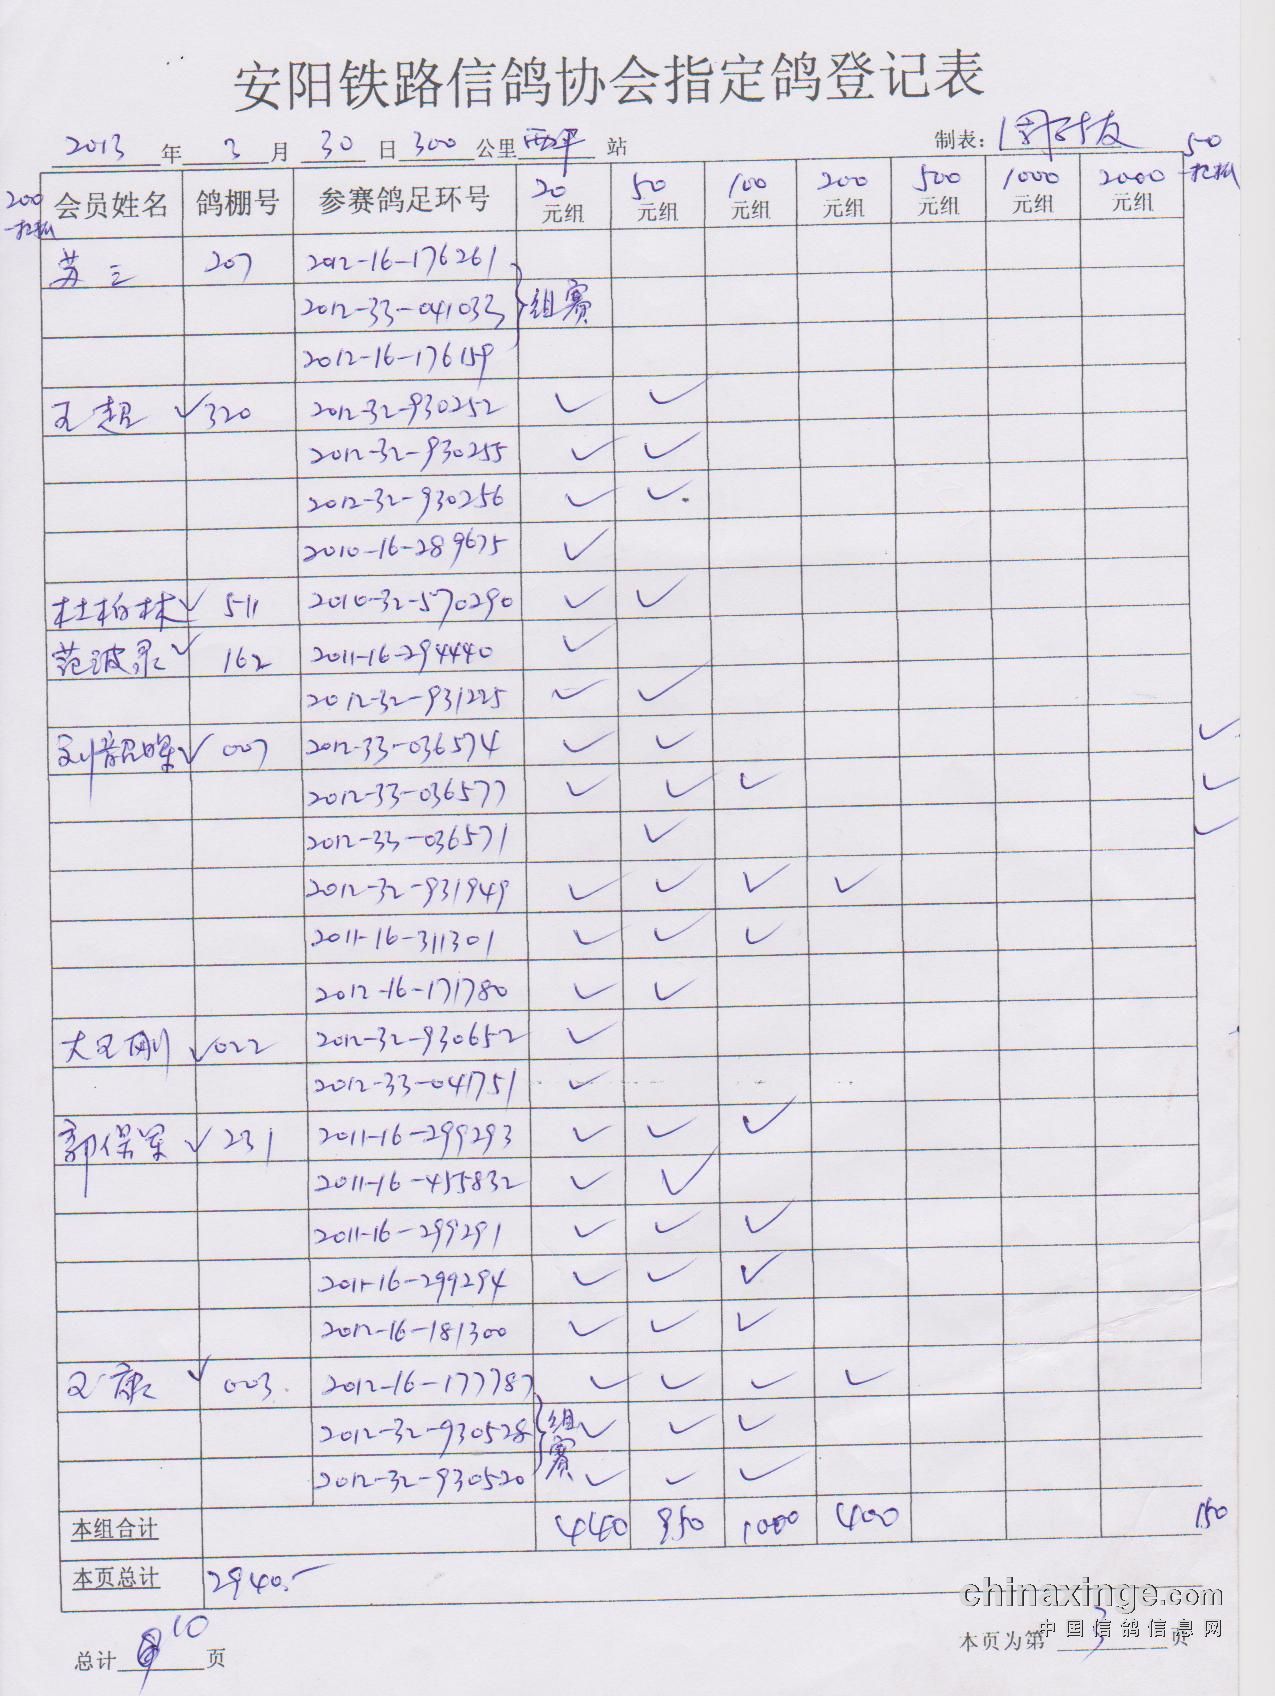 安阳铁路信鸽协会指定鸽登记表
2013 年 3 月 30 日 300 公里 西平 站 制表:
会员姓名 鸽棚号 参赛鸽足环号 20元组 50元组 100元组 200元组 500元组 1000元组 2000元组 50
200
苏三 207 2012-16-176261
2012-33-041033 组赛
2012-16-176159
王超 ✓ 320 2012-32-930252 ✓ ✓
2012-32-930255 ✓ ✓
2012-32-930256 ✓ ✓
2010-16-289675 ✓
杜柏林 ✓ 511 2010-32-570290 ✓ ✓
范波录 ✓ 162 2011-16-294440 ✓
2012-32-931225 ✓ ✓
刘韶峰 ✓ 007 2012-33-036574 ✓ ✓ ✓
2012-33-036577 ✓ ✓ ✓ ✓
2012-33-036571 ✓ ✓
2012-32-931949 ✓ ✓ ✓ ✓
2011-16-311301 ✓ ✓ ✓
2012-16-171780 ✓ ✓
大王刚 ✓ 022 2012-32-930652 ✓
2012-33-041751 ✓
郭保军 ✓ 231 2011-16-299293 ✓ ✓ ✓
2011-16-455832 ✓ ✓
2011-16-299291 ✓ ✓ ✓
2011-16-299294 ✓ ✓ ✓
2012-16-181300 ✓ ✓ ✓
王康 ✓ 003 2012-16-177787 ✓ ✓ ✓ ✓
2012-32-930528 组赛 ✓ ✓ ✓
2012-32-930520 ✓ ✓ ✓
本组合计 440 950 1000 400 150
本页总计 2940.-
chinaxinge.com
中国信鸽信息网
总计 10 页 本页为第 3 页